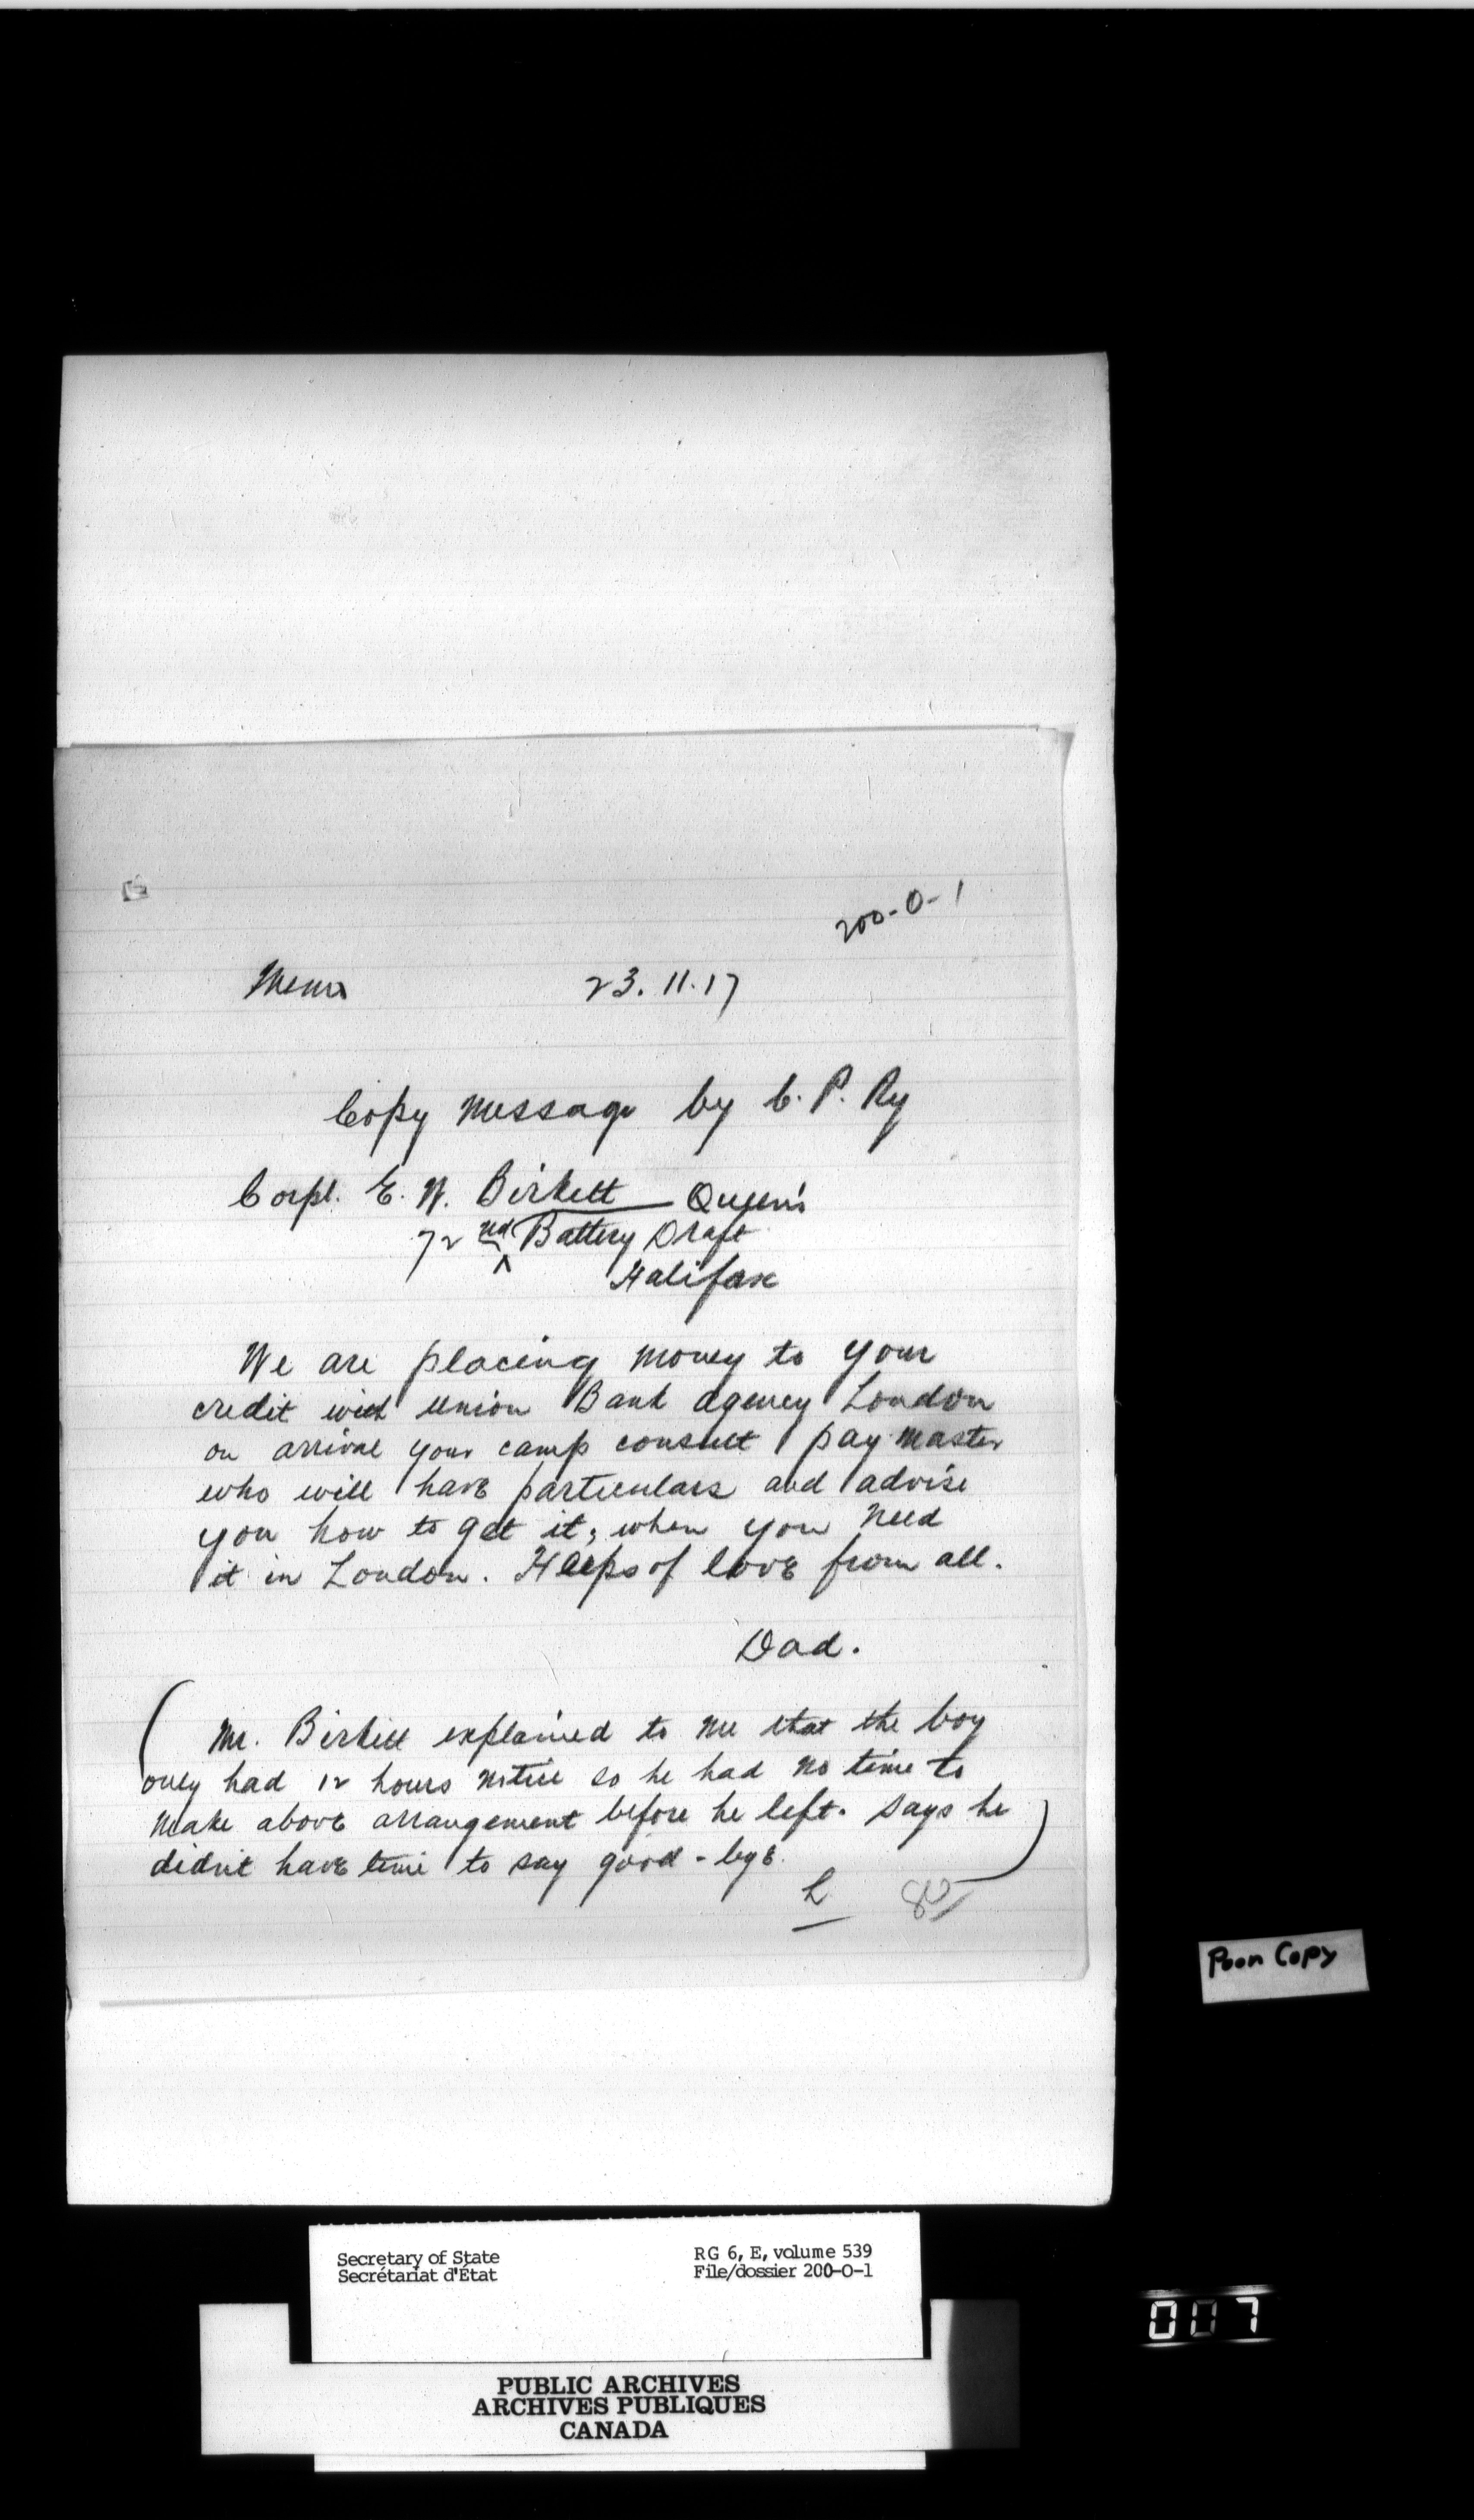 200-0-1
Memo 23.11.17
Copy message by C. P. Ry
Corpl. E. W. Birkett Queen's
72nd Battery Draft
Halifax
We are placing money to your
credit with Union Bank agency London
on arrival your camp consult paymaster
who will have particulars and advise
you how to get it, when you need
it in London. Heeps of love from all.
Dad.
(Mr. Birkett explained to me that the boy
only had 12 hours notice so he had no time to
make above arrangement before he left. Says he
didn't have time to say good-bye.)
L
Poor Copy
Secretary of State RG 6, E, volume 539
Secrétariat d'État File/dossier 200-O-1
007
PUBLIC ARCHIVES
ARCHIVES PUBLIQUES
CANADA